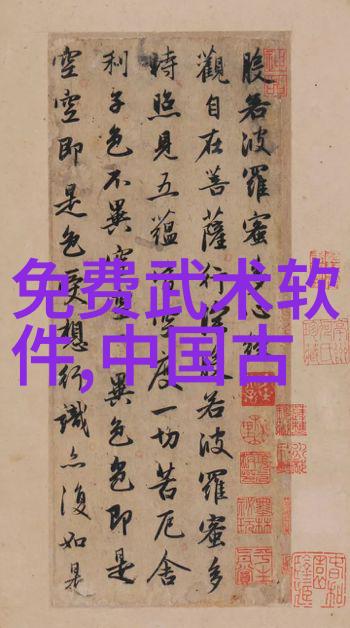 免费武术软
件,中国古
般若波羅蜜多心經
觀自在菩薩行深般若波羅蜜多
時照見五蘊皆空度一切苦厄舍
利子色不異空空不異色色即是
空空即是色受想行識亦復如是